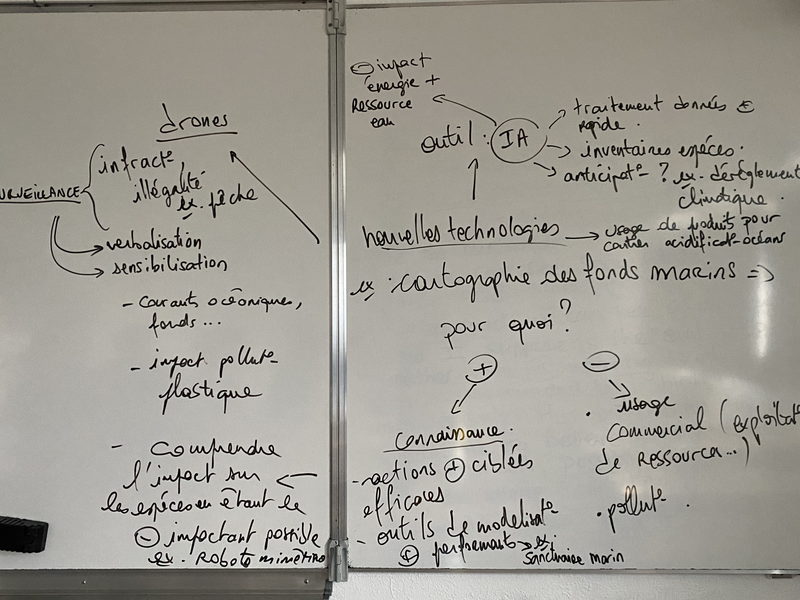 drones
SURVEILLANCE
infract°,
illégalité
ex. pêche
verbalisation
sensibilisation
- Courants océaniques,
fonds ...
- impact pollut°
plastique
- Comprendre
l'impact sur
les espèces en étant le
⊖ impactant possible
ex. Robots mimétiq
⊖ impact
énergie +
Ressource
eau
outil : IA
traitement données ⊕
rapide.
inventaires espèces.
anticipat° ? ex. dérèglement
climatique.
nouvelles technologies
usage de produits pour
contrer acidificat° océans
ex : cartographie des fonds marins =>
pour quoi ?
+
Connaissance.
- actions ⊕ ciblées
efficaces
- outils de modélisat°
⊕ performants → ex.
Sanctuaire marin
-
• usage
commercial (exploitat°
de Ressources...)
• pollut°.